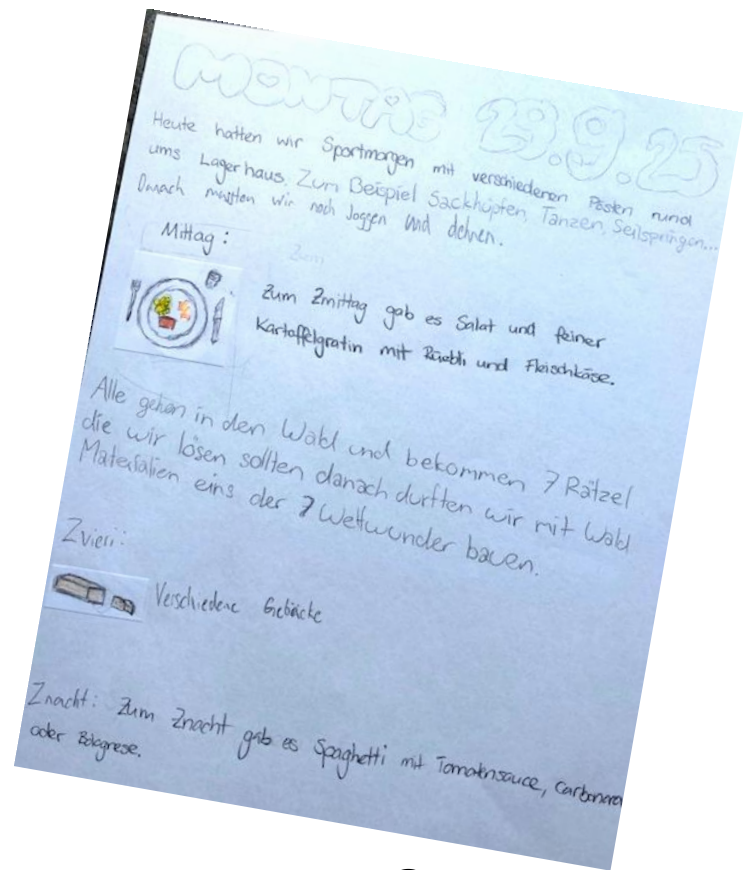 MONTAG 29.9.25
Heute hatten wir Sportmorgen mit verschiedenen Posten rund
ums Lagerhaus. Zum Beispiel Sackhüpfen, Tanzen, Seilspringen...
Danach mussten wir noch Joggen und dehnen.
Mittag:
Zum
Zum Zmittag gab es Salat und feiner
Kartoffelgratin mit Rüebli und Fleischkäse.
Alle gehen in den Wald und bekommen 7 Rätzel
die wir lösen sollten danach durften wir mit Wald
Materialien eins der 7 Weltwunder bauen.
Zvieri:
Verschiedene Gebäcke
Znacht: Zum Znacht gab es Spaghetti mit Tomatensauce, Carbonara
oder Bolognese.